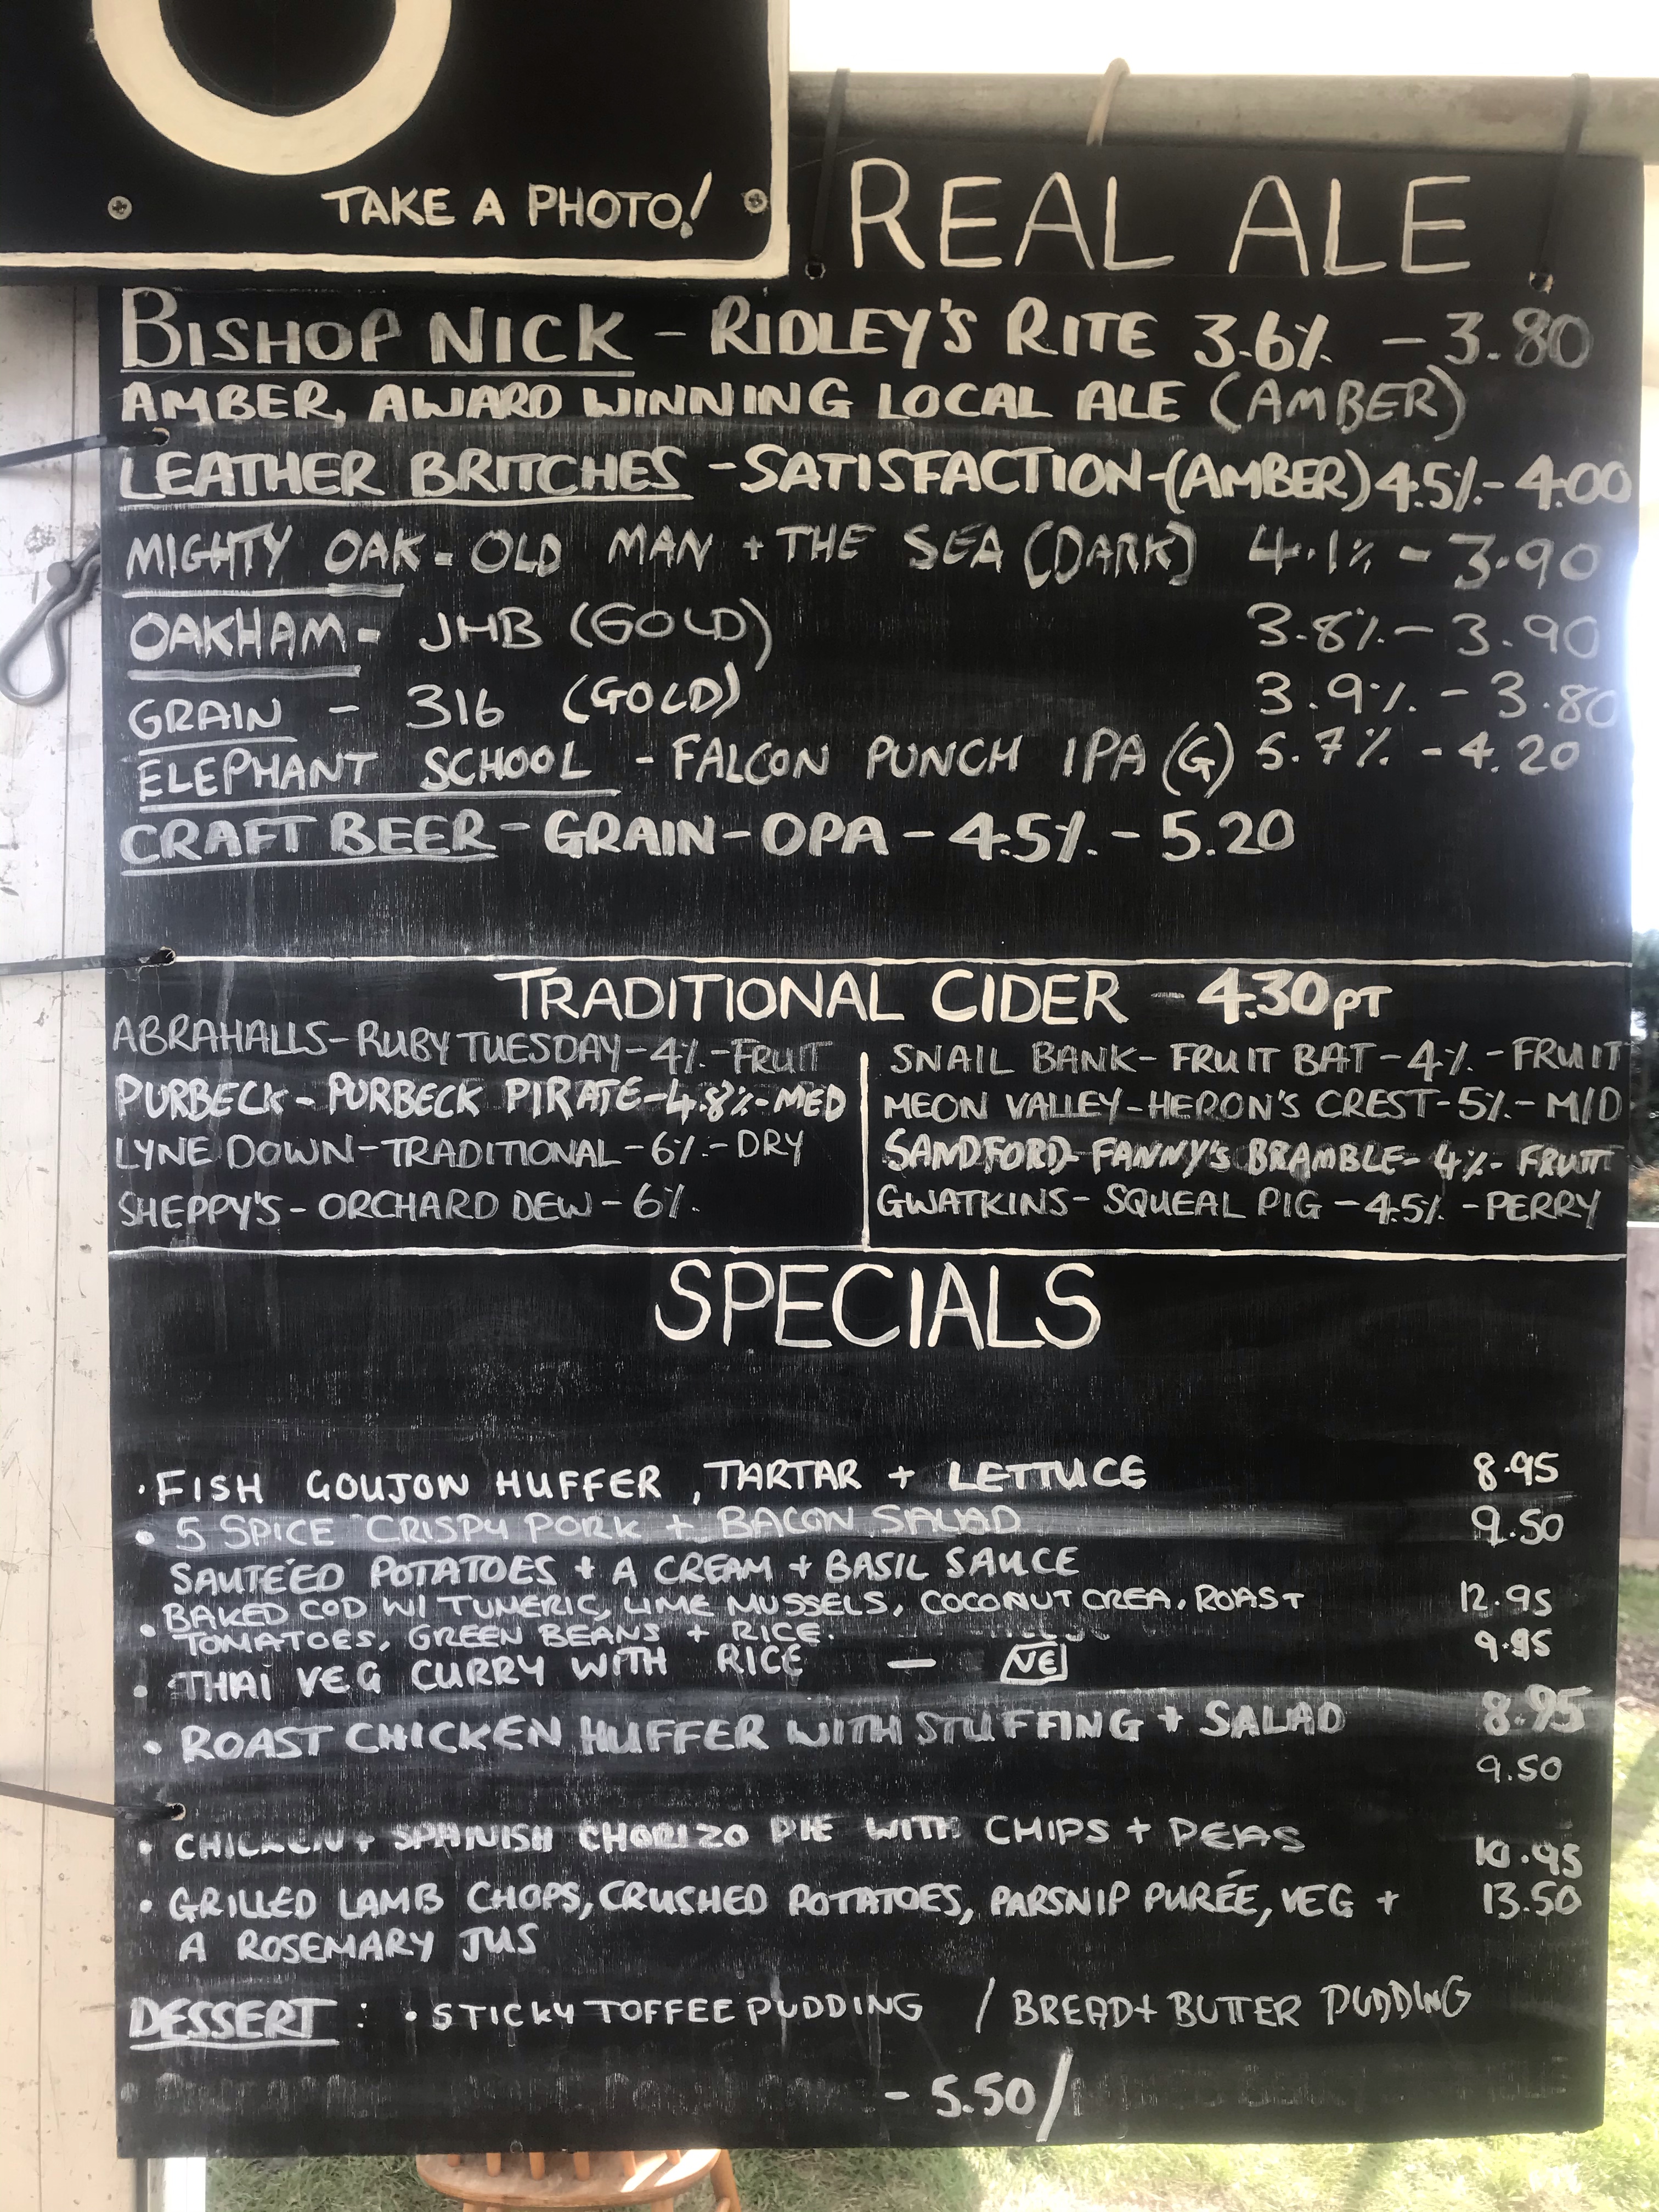 TAKE A PHOTO!
REAL ALE
BISHOP NICK - RIDLEY'S RITE 3.6% - 3.80
AMBER, AWARD WINNING LOCAL ALE (AMBER)
LEATHER BRITCHES - SATISFACTION - (AMBER) 4.5% - 4.00
MIGHTY OAK - OLD MAN + THE SEA (DARK) 4.1% - 3.90
OAKHAM - JHB (GOLD) 3.8% - 3.90
GRAIN - 316 (GOLD) 3.9% - 3.80
ELEPHANT SCHOOL - FALCON PUNCH IPA (G) 5.7% - 4.20
CRAFT BEER - GRAIN - OPA - 4.5% - 5.20
TRADITIONAL CIDER - 4.30 PT
ABRAHALLS - RUBY TUESDAY - 4% - FRUIT
PURBECK - PURBECK PIRATE - 4.8% - MED
LYNE DOWN - TRADITIONAL - 6% - DRY
SHEPPY'S - ORCHARD DEW - 6%
SNAIL BANK - FRUIT BAT - 4% - FRUIT
MEON VALLEY - HERON'S CREST - 5% - M/D
SANDFORD - FANNY'S BRAMBLE - 4% - FRUIT
GWATKINS - SQUEAL PIG - 4.5% - PERRY
SPECIALS
• FISH GOUJON HUFFER, TARTAR + LETTUCE 8.95
• 5 SPICE CRISPY PORK + BACON SALAD 9.50
SAUTÉED POTATOES + A CREAM + BASIL SAUCE
• BAKED COD W/ TUMERIC, LIME MUSSELS, COCONUT CREA, ROAST 12.95
TOMATOES, GREEN BEANS + RICE.
• THAI VEG CURRY WITH RICE - VE 9.95
• ROAST CHICKEN HUFFER WITH STUFFING + SALAD 8.95
9.50
• CHICKEN + SPANISH CHORIZO PIE WITH CHIPS + PEAS 10.95
• GRILLED LAMB CHOPS, CRUSHED POTATOES, PARSNIP PURÉE, VEG + 13.50
A ROSEMARY JUS
DESSERT : • STICKY TOFFEE PUDDING / BREAD + BUTTER PUDDING
- 5.50/